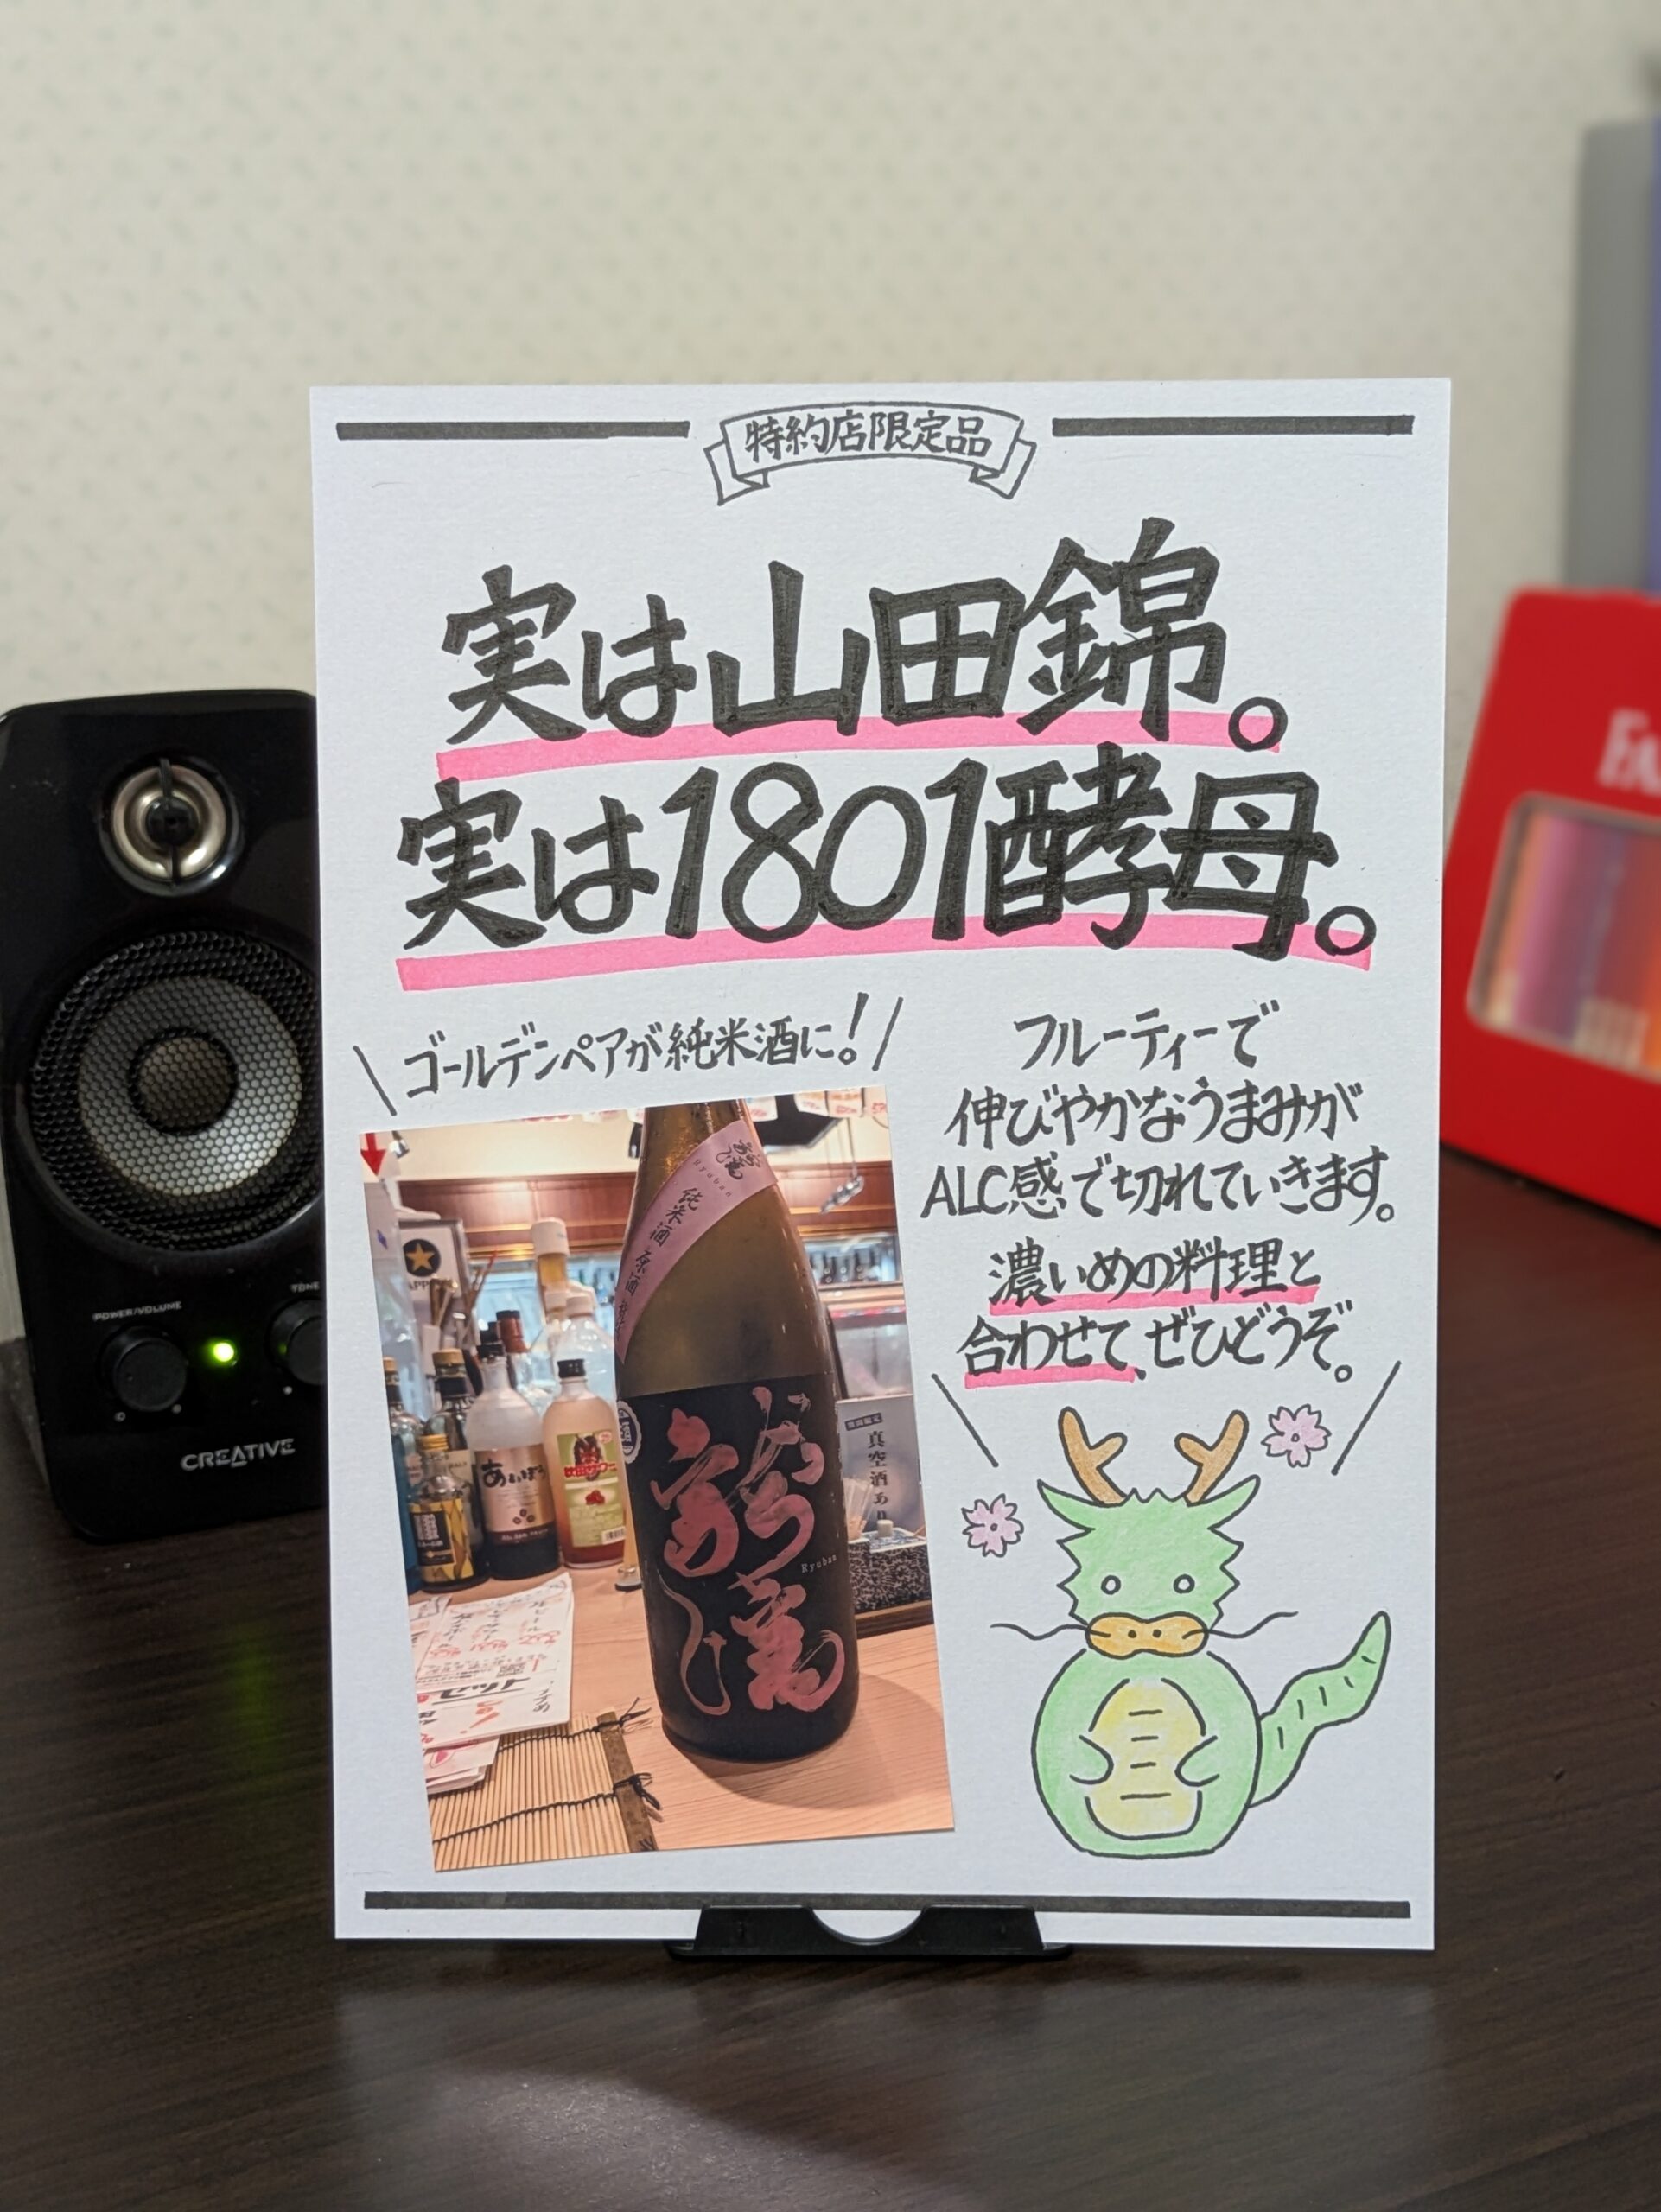 特約店限定品
実は山田錦。
実は1801酵母。
ゴールデンペアが純米酒に!
フルーティーで
伸びやかなうまみが
ALC感で切れていきます。
濃いめの料理と
合わせて、ぜひどうぞ。
Ryuban
純米酒 原酒
Ryuban
真空酒あり
POWER/VOLUME
TONE
CREATIVE